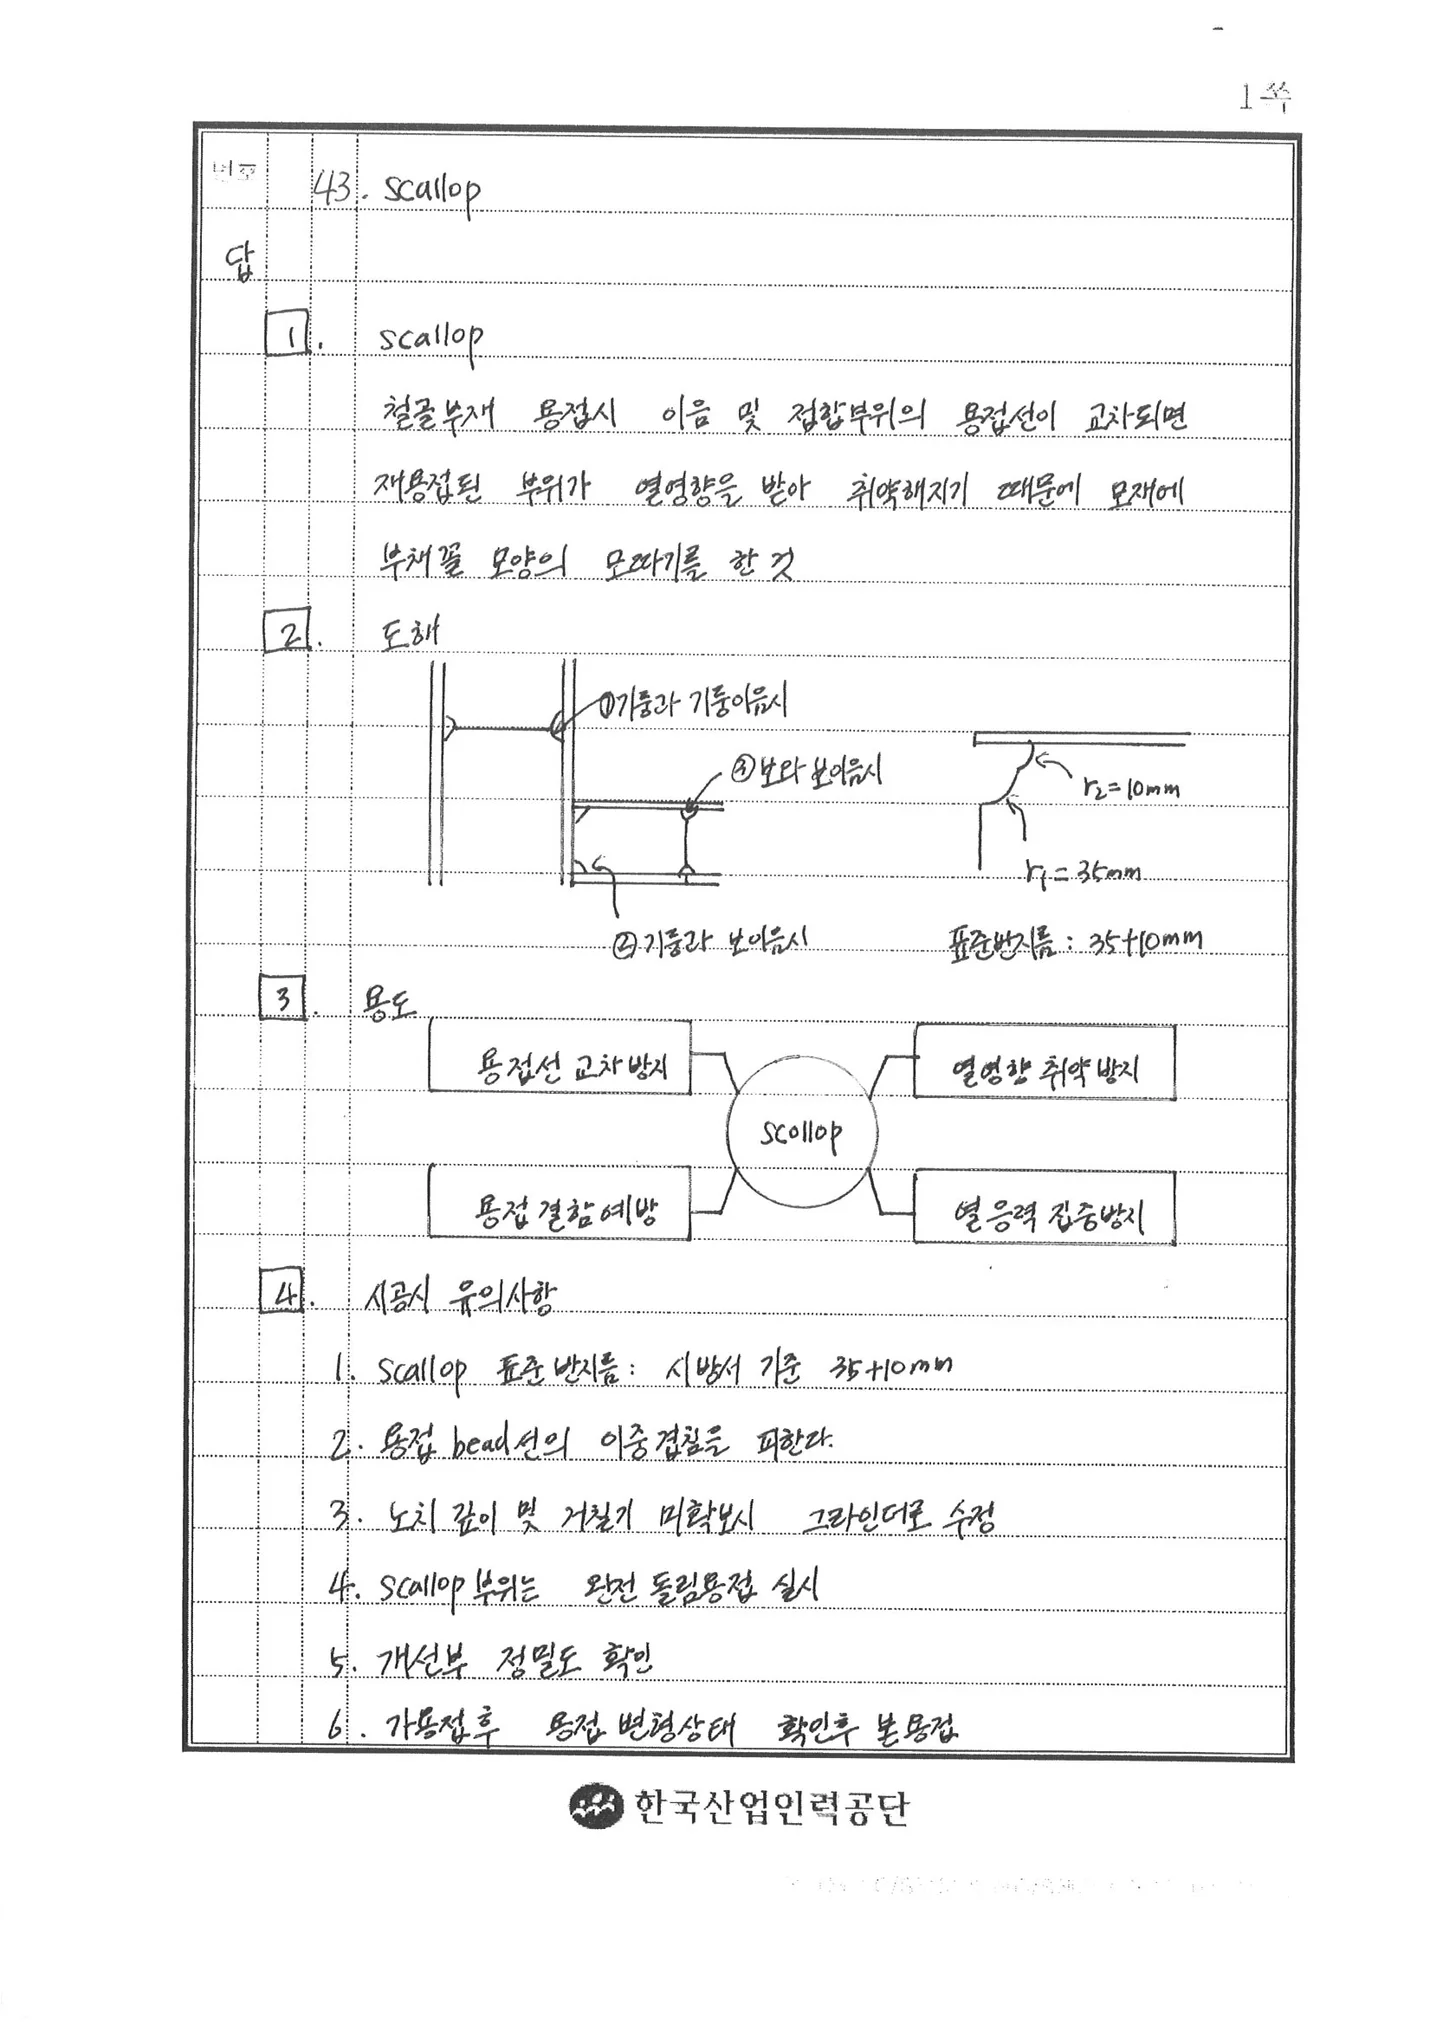 1쪽
번호 43. scallop
답
1. scallop
철골부재 용접시 이음 및 접합부위의 용접선이 교차되면
재용접된 부위가 열영향을 받아 취약해지기 때문에 모재에
부채꼴 모양의 모따기를 한 것
2. 도해
①기둥과 기둥이음시
③보와 보이음시
r2=10mm
r1=35mm
②기둥과 보이음시
표준반지름: 35+10mm
3. 용도
용접선 교차방지 열영향 취약방지
scollop
용접결함예방 열응력 집중방지
4. 시공시 유의사항
1. scallop 표준반지름: 시방서 기준 35+10mm
2. 용접 bead선의 이중겹침을 피한다.
3. 노치 깊이 및 거칠기 미확보시 그라인더로 수정
4. scallop부위는 완전 돌림용접 실시
5. 개선부 정밀도 확인
6. 가용접후 용접 변형상태 확인후 본용접
한국산업인력공단